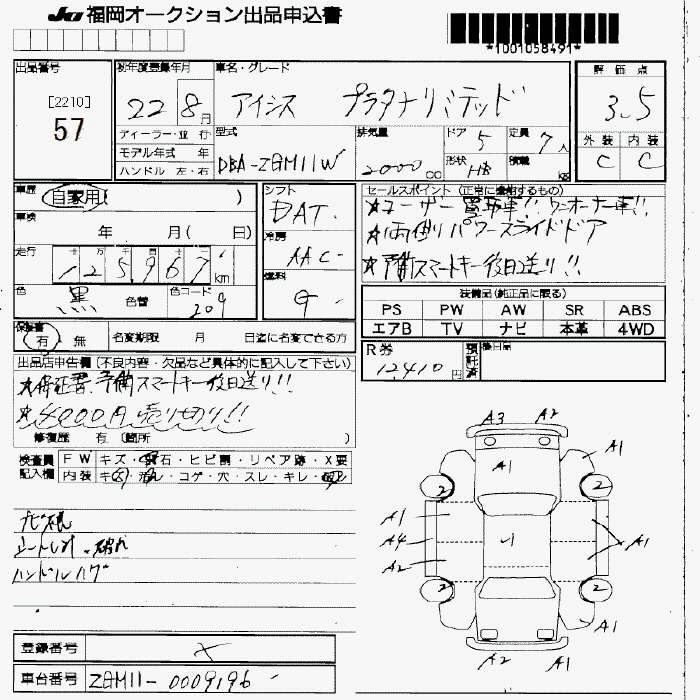 JU 福岡オークション出品申込書
*1001058491*
出品番号
[2210]
57
初年度登録年月
22 8月
車名・グレード
アイシス プラタナリミテッド
評価点
3.5
外装 内装
C C
ディーラー・並 行
モデル年式 年
ハンドル 左・右
型式
DBA-ZGM11W
排気量
2000 cc
ドア 5
形状 HB
定員 7人
積載 kg
車歴
自家用( )
車検
年 月( 日)
走行
125967 km
色 黒
色替
色コード 209
シフト
DAT
冷房
AAC
燃料
G
セールスポイント (正常に機能するもの)
★ユーザー買取車!! ワンオーナー車!!
★両側パワースライドドア
★予備スマートキー後日送り!!
装備品(純正品に限る)
PS PW AW SR ABS
エアB TV ナビ 本革 4WD
保証書
有・無
名変期限 月 日迄に名変できる方
R券
12410円
預託済
後日品
出品店申告欄 (不良内容・欠品など具体的に記入して下さい)
★保証書、予備スマートキー後日送り!!
★4000円売り切り!!
修復歴 有 (箇所 )
検査員記入欄
FW キズ・飛石・ヒビ割・リペア跡・X要
内装 キズ・汚れ・コゲ・穴・スレ・キレ・
ナビ
シート 破れ
ハンドルハゲ
A3 A2
A1
A1
2 2
A1
A4
A2
A1
2 2
A1
A2 A1
登録番号
車台番号 ZGM11-0009196